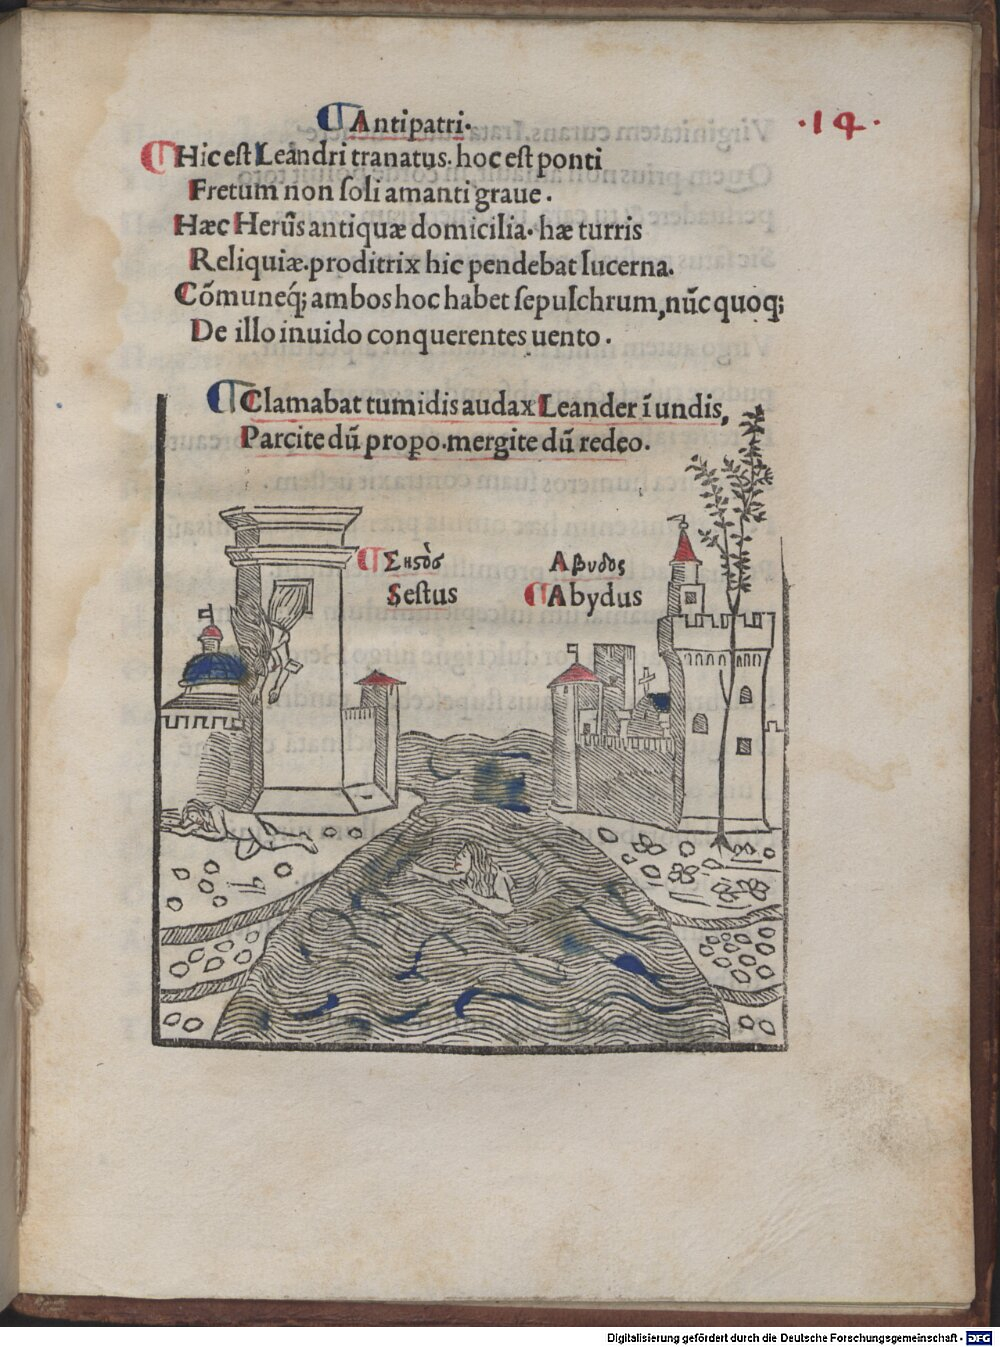 Antipatri.
·14·
Hic est Leandri tranatus. hoc est ponti
Fretum non ſoli amanti graue.
Hæc Herũs antiquæ domicilia. hæ turris
Reliquiæ. proditrix hic pendebat lucerna.
Cõmuneq́; ambos hoc habet ſepulchrum, nũc quoq;
De illo inuido conquerentes uento.
Clamabat tumidis audax Leander ĩ undis,
Parcite dũ propo. mergite dũ redeo.
Σηςὸς
Αβυδος
Seſtus
Abydus
Digitalisierung gefördert durch die Deutsche Forschungsgemeinschaft - DFG